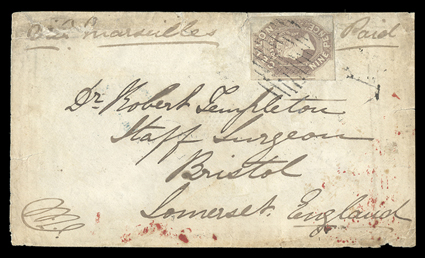 Via Marseilles Paid
Dr. Robert Templeton
Staff Surgeon
Bristol
Somerset. England